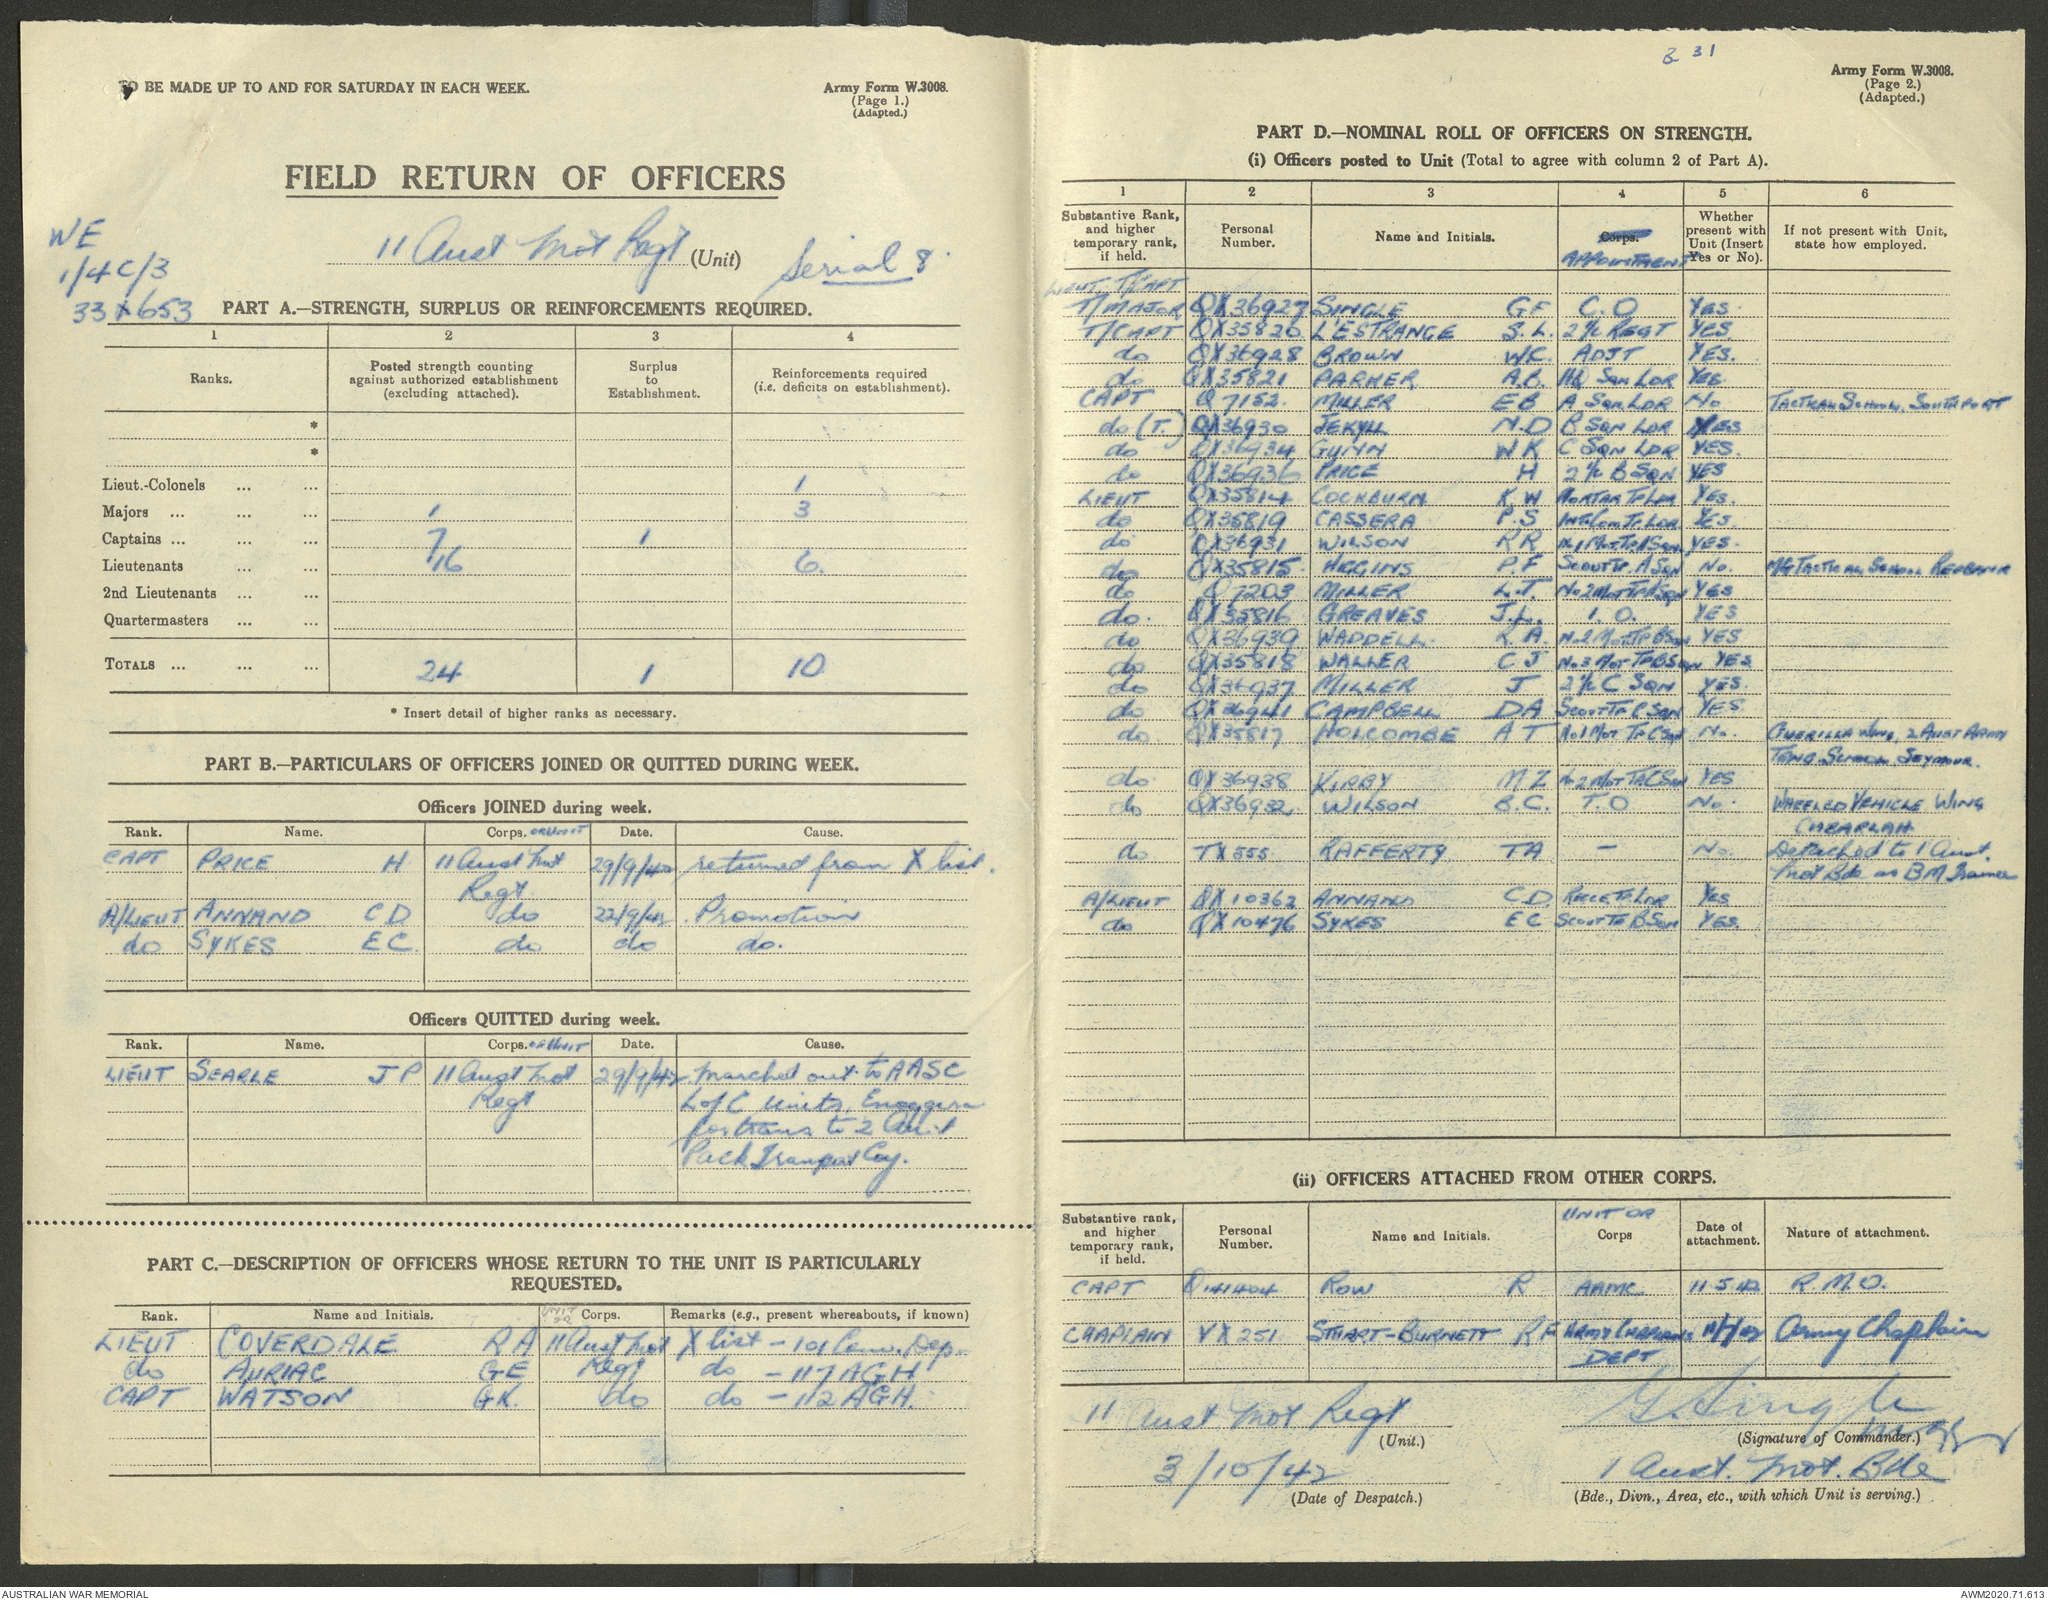 TO BE MADE UP TO AND FOR SATURDAY IN EACH WEEK.
Army Form W.3008.
(Page 1.)
(Adapted.)
FIELD RETURN OF OFFICERS
WE
1/4C/3
33 x 653
11 Aust Mot Regt (Unit)
Serial 8.
PART A.—STRENGTH, SURPLUS OR REINFORCEMENTS REQUIRED.
1 2 3 4
Ranks. Posted strength counting against authorized establishment (excluding attached). Surplus to Establishment. Reinforcements required (i.e. deficits on establishment).
*
*
Lieut.-Colonels ... ... 1
Majors ... ... ... 1 3
Captains ... ... ... 7 1
Lieutenants ... ... 16 6.
2nd Lieutenants ... ...
Quartermasters ... ...
TOTALS ... ... ... 24 1 10
* Insert detail of higher ranks as necessary.
PART B.—PARTICULARS OF OFFICERS JOINED OR QUITTED DURING WEEK.
Officers JOINED during week.
Rank. Name. Corps. OR UNIT Date. Cause.
CAPT PRICE H 11 Aust Mot 29/9/42 returned from X list.
Regt.
A/LIEUT ANNAND C D do 22/9/42. Promotion
do SYKES E C. do do do.
Officers QUITTED during week.
Rank. Name. Corps. OR UNIT Date. Cause.
LIEUT SEARLE J P 11 Aust Mot 29/9/42 Marched out to AASC
Regt L of C Units, Enoggera
for trans to 2 Aust
Pack Transport Coy.
PART C.—DESCRIPTION OF OFFICERS WHOSE RETURN TO THE UNIT IS PARTICULARLY
REQUESTED.
Rank. Name and Initials. UNIT OR Corps. Remarks (e.g., present whereabouts, if known)
LIEUT COVERDALE R A 11 Aust Mot X list - 101 Conv. Dep.
do AURIAC G E Regt do - 117 AGH
CAPT WATSON G K. do do - 112 AGH.
B 31
Army Form W.3008.
(Page 2.)
(Adapted.)
PART D.—NOMINAL ROLL OF OFFICERS ON STRENGTH.
(i) Officers posted to Unit (Total to agree with column 2 of Part A).
1 2 3 4 5 6
Substantive Rank, and higher temporary rank, if held. Personal Number. Name and Initials. Corps. APPOINTMENT Whether present with Unit (Insert Yes or No). If not present with Unit, state how employed.
LIEUT T/CAPT
T/MAJOR QX36927 SINGLE G F C.O YES.
T/CAPT QX35820 L'ESTRANGE S.L. 2 i/c REGT YES
do QX36928 BROWN W C. ADJT YES.
do QX35821 PARKER, A.B. HQ Sqn LDR YES
CAPT Q7152. MILLER E B A. Sqn LDR No TACTICAL SCHOOL, SOUTHPORT
do (T.) QX36930 JEKYLL N.D B SQN LDR YES
do QX36934 GUNN W K C SQN LDR YES.
do QX36936 PRICE H 2 i/c B SQN YES
LIEUT QX35814 COCKBURN K. W MORTAR TP LDR YES.
do QX35819 CASSERA P.S INTCOM TP LDR YES.
do QX36931 WILSON R R No 1 MOT TP A Sqn YES.
do QX35815. HIGGINS P.F SCOUT TP. A SQN No. MG TACTICAL SCHOOL REDBANK
do Q7203 MILLER L.T. No 2 MOT TP A SQN YES
do. QX35816 GREAVES J.L. I. O. YES
do QX36939 WADDELL R. A. No 2 MOT TP B SQN YES
do QX35818 WALLER C J No 3 MOT TP B SQN YES
do QX36937 MILLER J 2 i/c C SQN YES.
do QX36941 CAMPBELL D A SCOUT TP C SQN YES
do. QX35817 HOLCOMBE A T No 1 MOT TP C SQN No. GUERILLA WING, 2 AUST ARMY
TRNG. SCHOOL, SEYMOUR.
do QX36938 KIRBY M Z No 2 MOT TP C SQN YES
do QX36932 WILSON B.C. T.O No. WHEELED VEHICLE WING
CABARLAH.
do TX555 RAFFERTY T A — No. Detached to 1 Aust.
Mot Bde as BM Trainee
A/LIEUT QX10362 ANNAND C D RECCE TP LDR YES
do QX10476 SYKES E C SCOUT TP B SQN YES.
(ii) OFFICERS ATTACHED FROM OTHER CORPS.
Substantive rank, and higher temporary rank, if held. Personal Number. Name and Initials. UNIT OR Corps Date of attachment. Nature of attachment.
CAPT Q141404 ROW R AAMC 11.5.42 R.M.O.
CHAPLAIN VX251 STUART-BURNETT R F ARMY CHAPLAINS Army Chaplain
DEPT
11 Aust Mot Regt
(Unit.)
G. Single
(Signature of Commander.)
3/10/42
(Date of Despatch.)
1 Aust. Mot. Bde
(Bde., Divn., Area, etc., with which Unit is serving.)
AUSTRALIAN WAR MEMORIAL
AWM2020.71.613